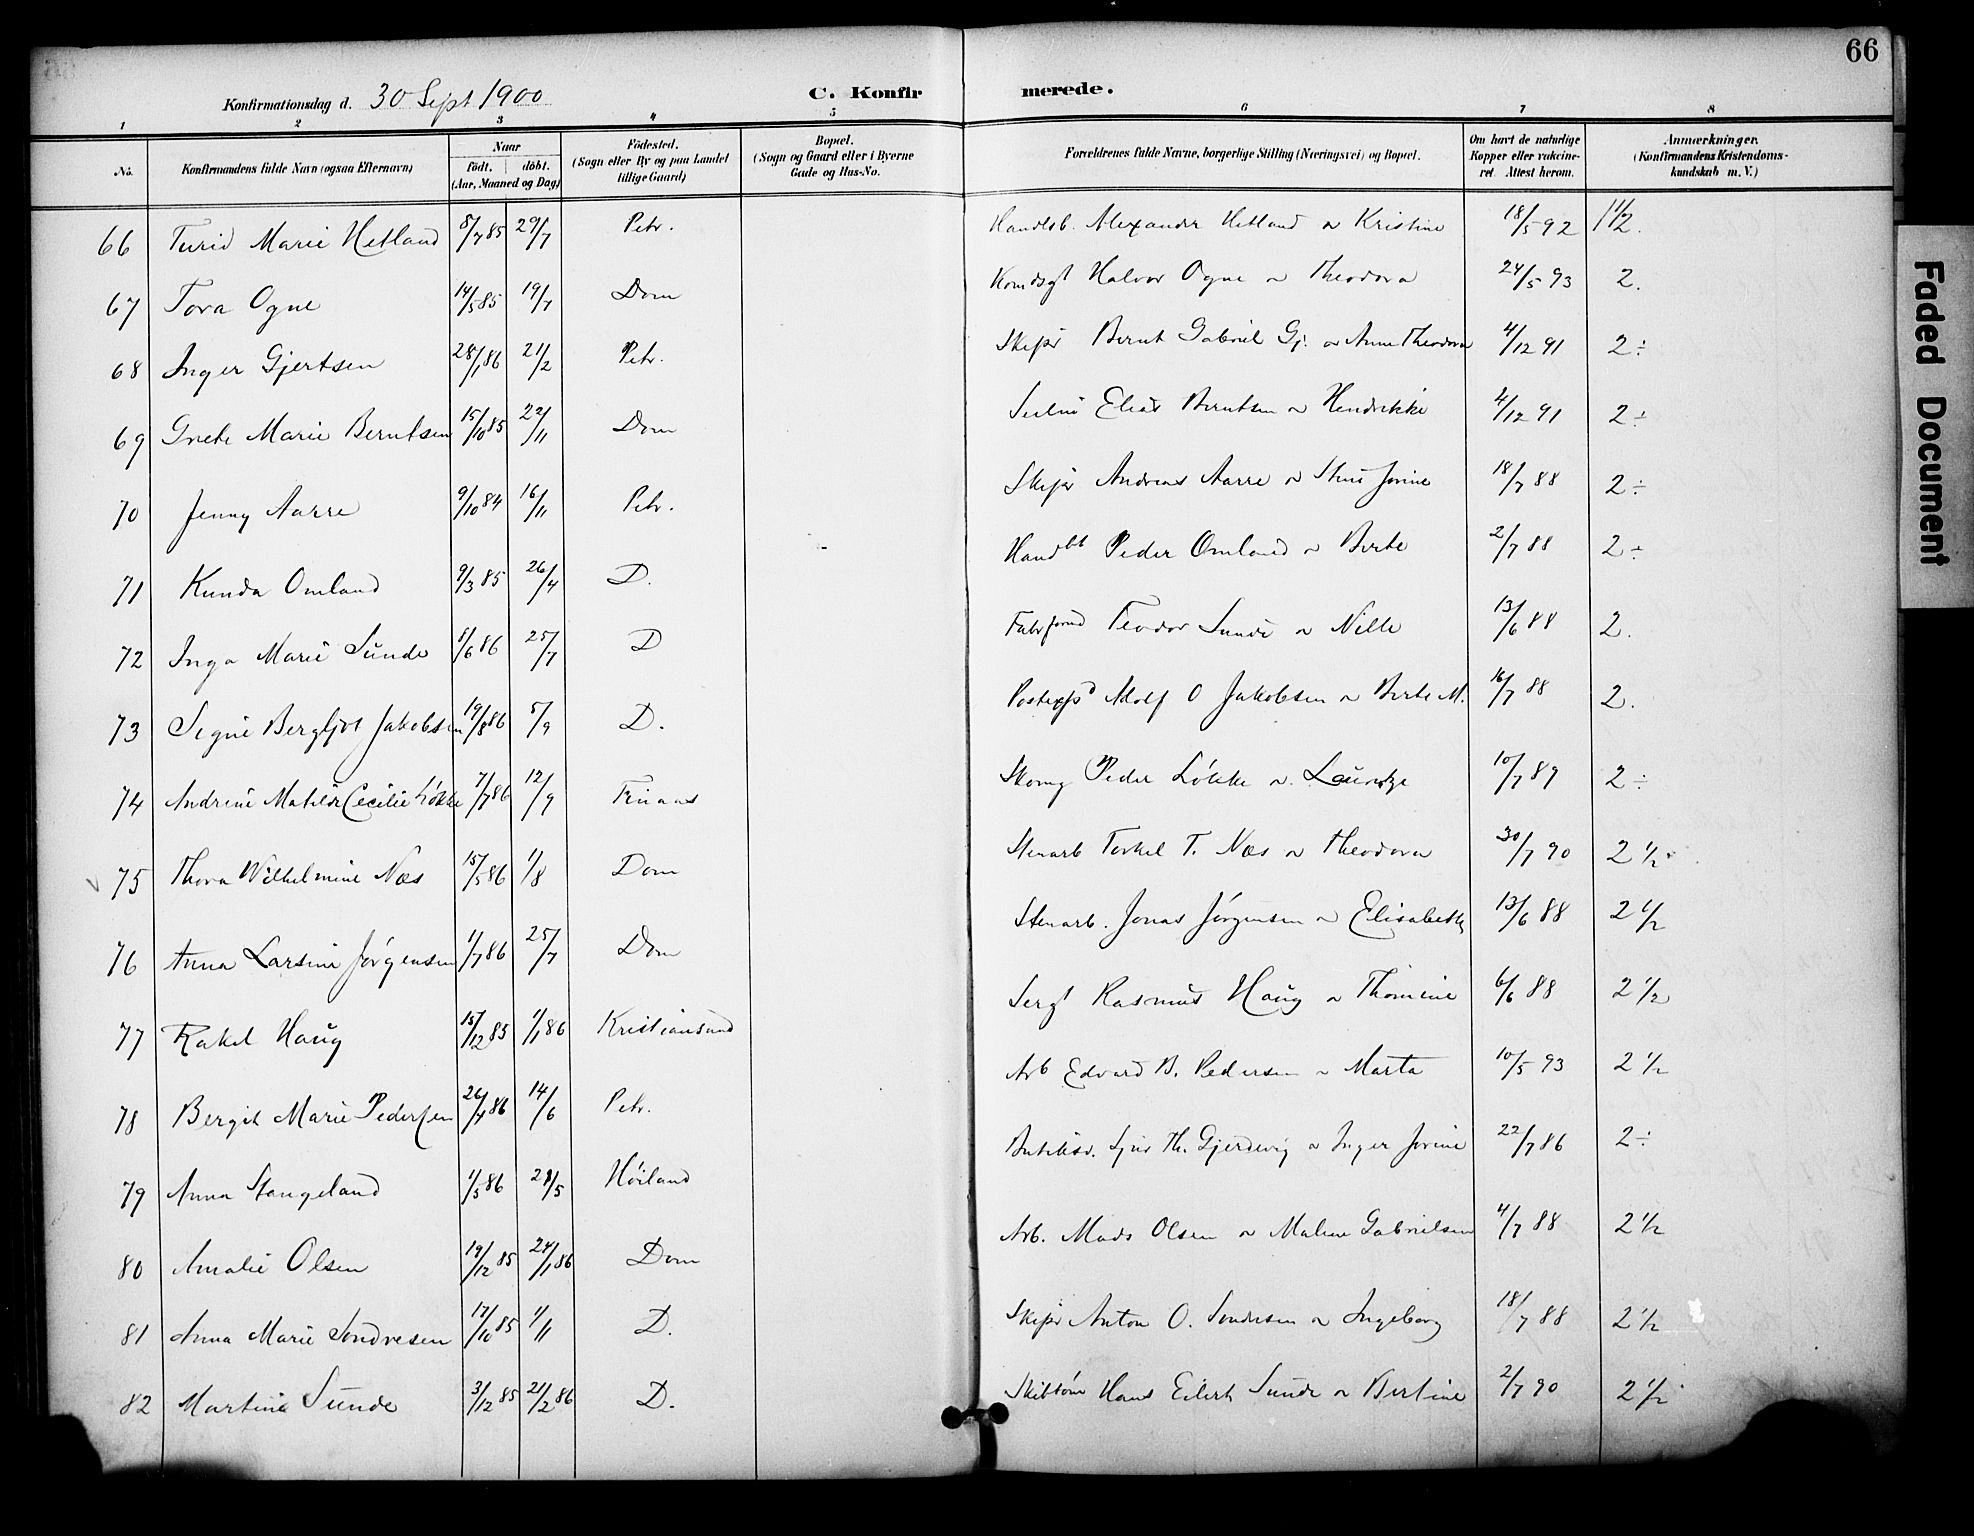 66
Konfirmationsdag d. 30 Sept 1900 C. Konfirmerede.
1 2 3 4 5 6 7 8
No. Konfirmandens fulde Navn (ogsaa Efternavn) Naar födt. döbt. (Aar, Maaned og Dag) Födested. (Sogn eller By og paa Landet tillige Gaard) Bopæl. (Sogn og Gaard eller i Byerne Gade og Hus-No. Forældrenes fulde Navne, borgerlige Stilling (Næringsvei) og Bopæl. Om havt de naturlige Kopper eller vakcineret. Attest herom. Anmærkninger. (Konfirmandens Kristendomskundskab m. V.)
66 Turid Marie Hetland 8/7 85 29/7 Petr. Handlsb. Alexander Hetland o Kristine 18/5 92 1 1/2.
67 Tora Ogne 14/5 85 19/7 Dom Halvor Ogne o Theodora 24/5 93 2.
68 Inger Gjertsen 28/1 86 21/2 Petr. Skipr Bernt Gabriel Gj. o Anne Theodora 4/12 91 2÷
69 Grete Marie Berntsen 15/10 85 22/11 Dom Elias Berntsen o Hendrikke 4/12 91 2÷
70 Jenny Aarre 9/10 84 16/11 Petr. Skipr Andreas Aarre o Jorine 18/7 88 2÷
71 Kunda Omland 9/3 85 26/4 D. Peder Omland o Berte 2/7 88 2÷
72 Inga Marie Sunde 8/6 86 25/7 D Teodor Sunde o Nille 13/6 88 2.
73 Signe Bergljot Jakobsen 19/8 86 5/9 D. Adolf O Jakobsen o Berte M. 16/7 88 2.
74 Andrine Matilde Cecilie Løkke 7/7 86 12/9 Skomg Peder Løkke o. 10/7 89 2÷
75 Thora Wilhelmine Næs 15/5 86 1/8 Dom Stenarb Torkel T. Næs o Theodora 30/7 90 2 1/2
76 Anna Larsine Jørgensen 1/7 86 25/7 Dom Stenarb. Jonas Jørgensen o Elisabeth 13/6 88 2 1/2
77 Rakel Haug 15/12 85 1/1 86 Kristiansund Sergt Rasmus Haug o Thomine 6/6 88 2 1/2
78 Bergit Marie Pedersen 26/4 86 14/6 Petr. Arb Edvard B. Pedersen o Marta 10/5 93 2 1/2
79 Anna Stangeland 1/5 86 Höiland Th. Gjerdevig o Inger Jorine 22/7 86 2÷
80 Amalie Olsen 19/12 85 24/1 86 Dom Arb. Mads Olsen o Malene Gabrielsen 4/7 88 2 1/2
81 Anna Marie Sondresen 17/10 85 1/11 D. Skipr Anton O. Sondresen o Ingeborg 18/7 88 2 1/2
82 Martine Sunde 3/12 85 21/2 86 D. Skibtøm Hans Eilert Sunde o Bertine 2/7 90 2 1/2
Faded Document